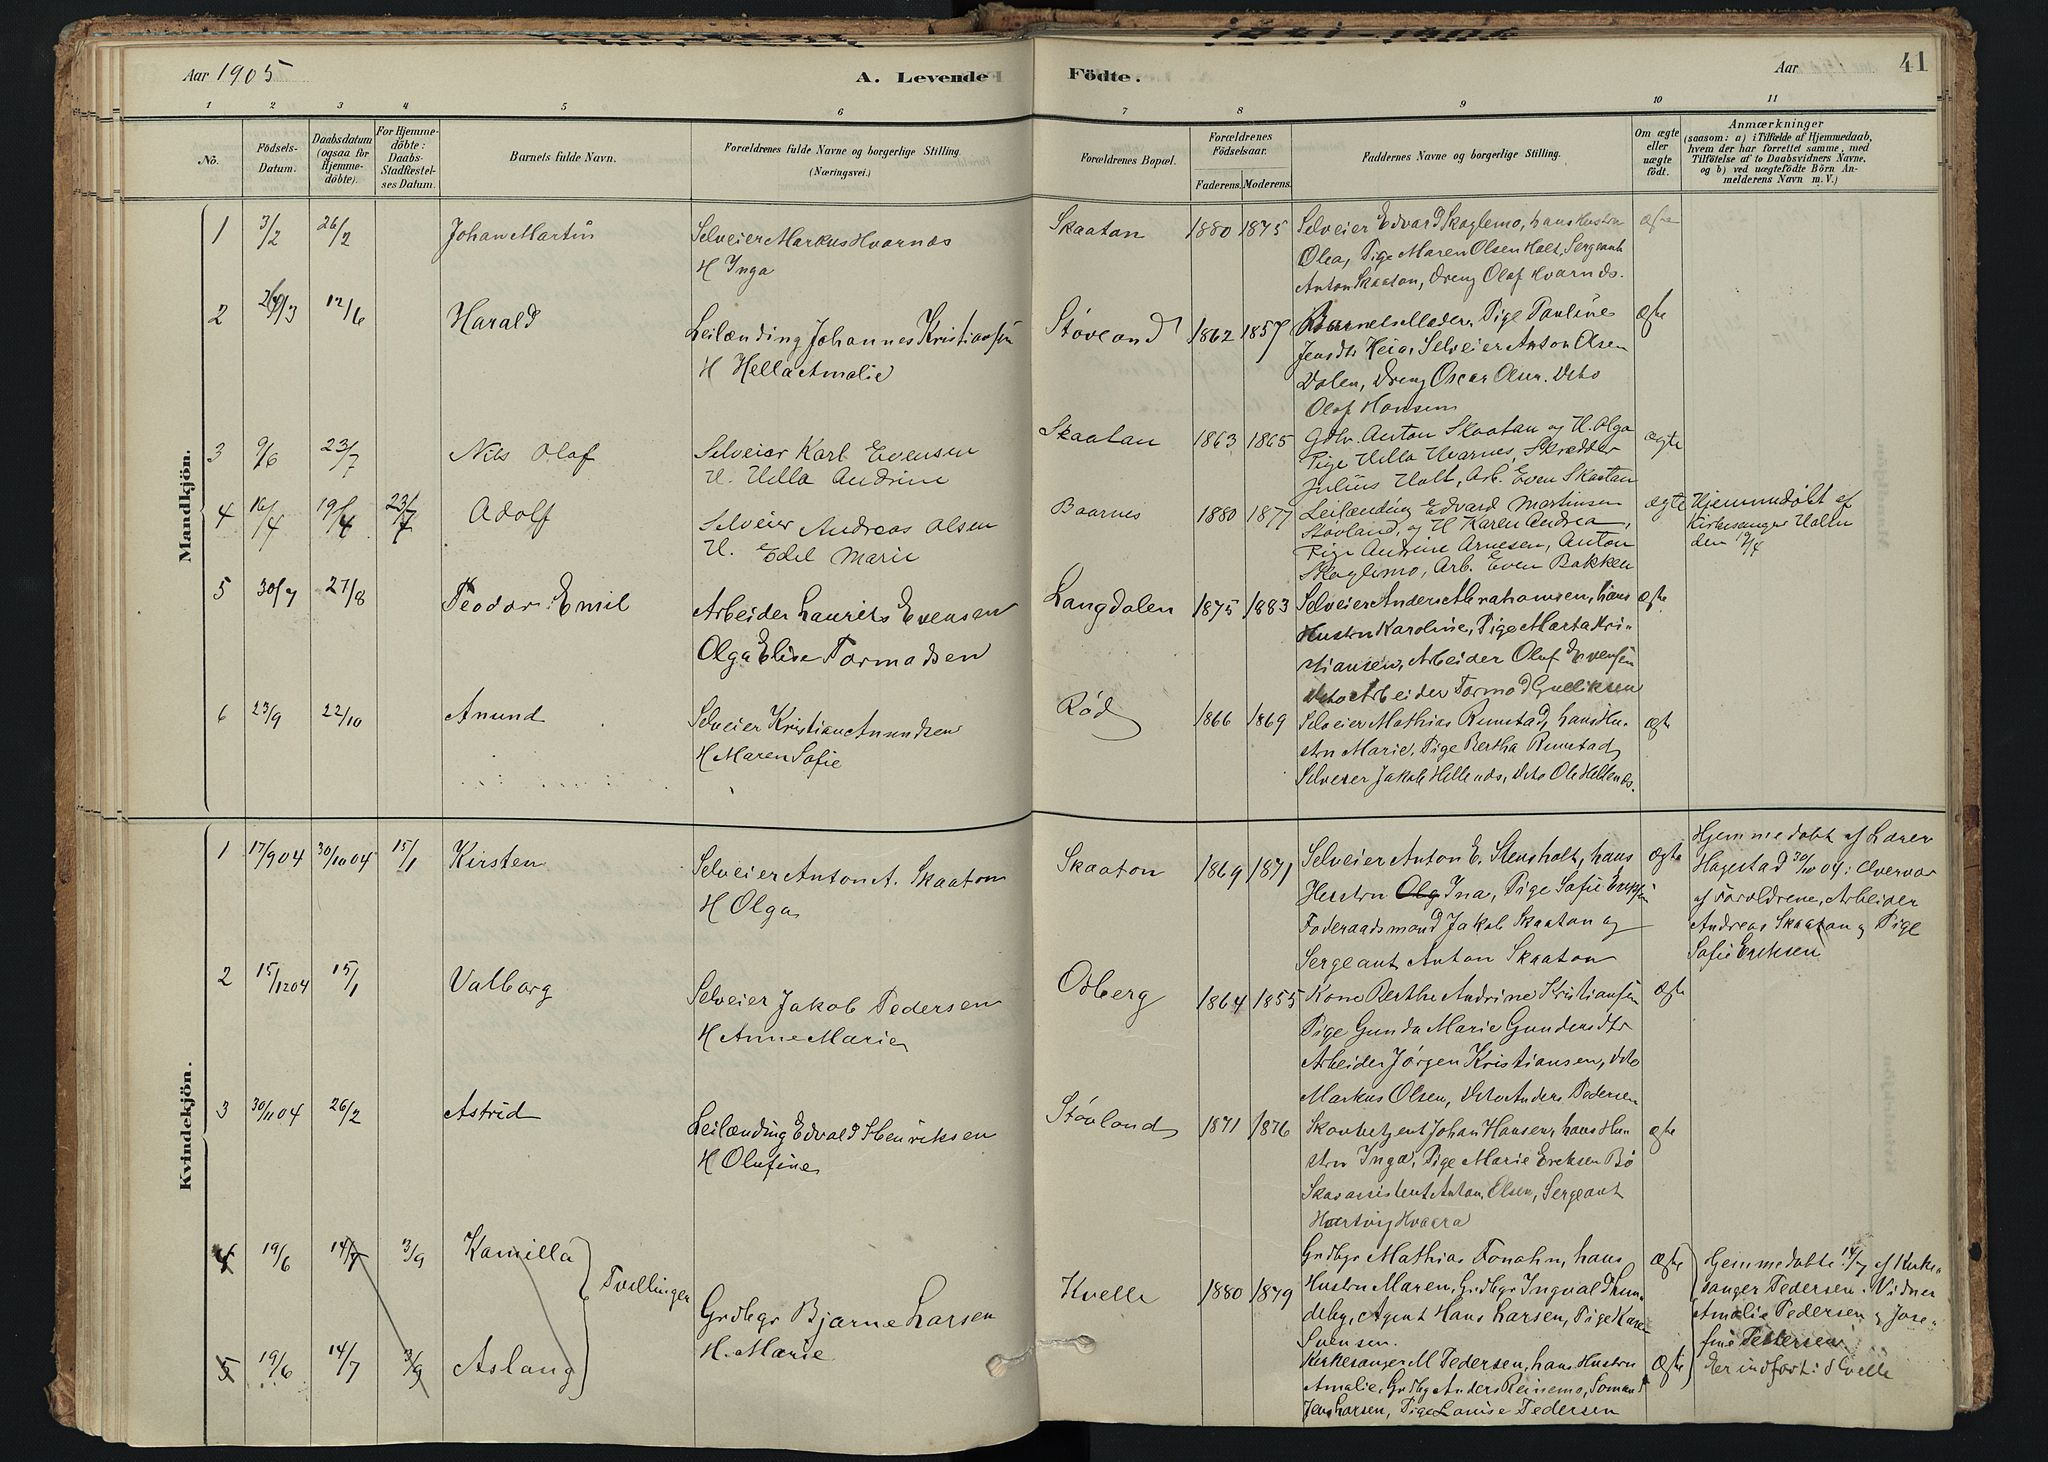 Aar 1905
A. Levende
Födte.
Aar
41
1 2 3 4 5 6 7 8 9 10 11
No.
Födsels-
Datum.
Daabsdatum
(ogsaa for
Hjemme-
döbte).
For Hjemme-
döbte:
Daabs-
Stadfæstel-
ses Datum.
Barnets fulde Navn.
Forældrenes fulde Navne og borgerlige Stilling.
(Næringsvei.)
Forældrenes Bopæl.
Forældrenes
Födselsaar.
Faderens. Moderens.
Faddernes Navne og borgerlige Stilling.
Om ægte
eller
uægte
födt.
Anmærkninger
(saasom: a) i Tilfælde af Hjemmedaab,
hvem der har forrettet samme, med
Tilföielse af to Daabsvidners Navne,
og b) ved uægtefödte Börn An-
melderens Navn m. V.)
Mandkjön.
1 3/2 26/2 Johan Martin Selveier Markus Hvarnæs
H Inga
Skaatan 1880 1875 Selveier Edvard Skaglemo, hans Hustru
Olea, Pige Maren Olsen Holt, Sergeant
Anton Skaatan, Dreng Olaf Hvarnæs.
ægte
2 12/6 Harald Leilænding Johannes Kristiansen
H Hella Amalie
Støvland 1862 1857 Barnets Moder, Pige Pauline
Jensdtr Heia, Selveier Anton Olsen
Dalen, Dreng Oscar Olsen. Dito
Olaf Hansen
ægte
3 9/6 23/7 Nils Olaf Selveier Karl Evensen
H. Hella Andrine
Skaatan 1863 1865 Gdbr. Anton Skaatan og H. Olga
Pige Hilla Hvarnes, Skrædder
Julius Holt, Arb. Even Skaatan
ægte
4 16/4 19/4 23/7 Adolf Selveier Andreas Olsen
H. Edel Marie
Baarnes 1880 1877 Leilænding Edvard Martinsen
Støvland, og H Karen Andrea,
Pige Andrine Arnesen, Anton
Skaglemo, Arb. Even Bakken
ægte Hjemmedøbt af
Kirkesanger Holm
den 19/4
5 30/7 27/8 Teodor Emil Arbeider Laurits Evensen
Olga Elise Tormodsen
Langdalen 1875 1883 Selveier Anders Abrahamsen, hans
Hustru Karoline, Pige Marta Kri-
stiansen, Arbeider Oluf Evensen
Dito Arbeider Tormod Gulliksen
ægte
6 23/9 22/10 Anund Selveier Kristian Anundsen
H Maren Sofie
Rød 1866 1869 Selveier Mathias Rimstad, hans Hu-
stru Marie, Pige Bertha Rimstad,
Selveier Jakob Hellenæs, Dito Ole Hellenæs.
ægte
Kvindekjön.
1 17/9 04 30/10 04 15/1 Kirsten Selveier Anton A. Skaatan
H Olga
Skaatan 1869 1871 Selveier Anton E. Stensholt, hans
Hustru Olg Ina, Pige Sofie Eriksen
Føderaadsmand Jakob Skaatan og
Sergeant Anton Skaatan
ægte Hjemmedøbt af Lærer
Hagestad 30/10 04: Overvær
af Forældrene, Arbeider
Andreas Skaatan og Pige
Sofie Eriksen
2 15/12 04 15/1 Valborg Selveier Jakob Pedersen
H Anne Marie
Odberg 1864 1855 Kone Berthe Andrine Kristiansen
Pige Gunda Marie Gundersdtr
Arbeider Jørgen Kristiansen, Dito
Markus Olsen, Dito Anders Pedersen
ægte
3 30/11 04 26/2 Astrid Leilænding Edvald Henriksen
H Olufine
Støvland 1871 1876 Skovbetjent Johan Hansen, hans Hu-
stru Inga, Pige Marie Eriksen Bø
Skovassistent Anton Olsen, Sergeant
Hartvig Hvaara
ægte
4 19/6 14/7 3/9 Kamilla
Tvillinger
Grdbgr Bjarne Larsen
H. Marie
Kvelle 1880 1879 Grdbgr Mathias Fonahn, hans
Hustru Maren, Grdbgr Ingvald Lun-
deby, Agent Hans Larsen, Pige Karen
Svensen.
ægte Hjemmedøbte 14/7 af Kirke-
sanger Pedersen. Vidner
Amalie Pedersen og Jose-
fine Pettersen
5 19/6 14/7 3/9 Aslaug
Kirkesanger M Pedersen, hans Hustru
Amalie, Grdbg Anders Reinemo, Sømand
Jens Larsen, Pige Louise Pedersen
ægte Er indført i Kvelle